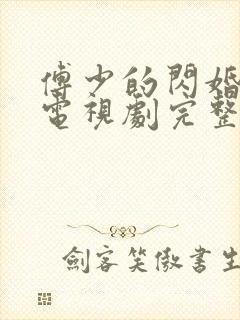 傅少的閃婚
電視劇完整
劍客笑傲書生